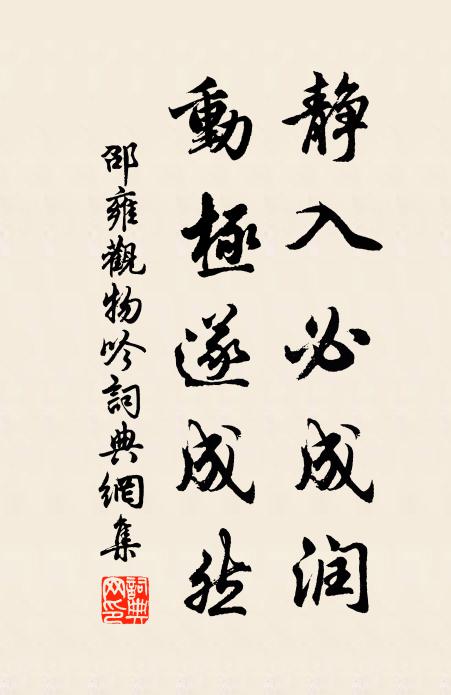 靜入必成潤
動極遂成然
邵雍觀物吟詞典網集
詞典网印